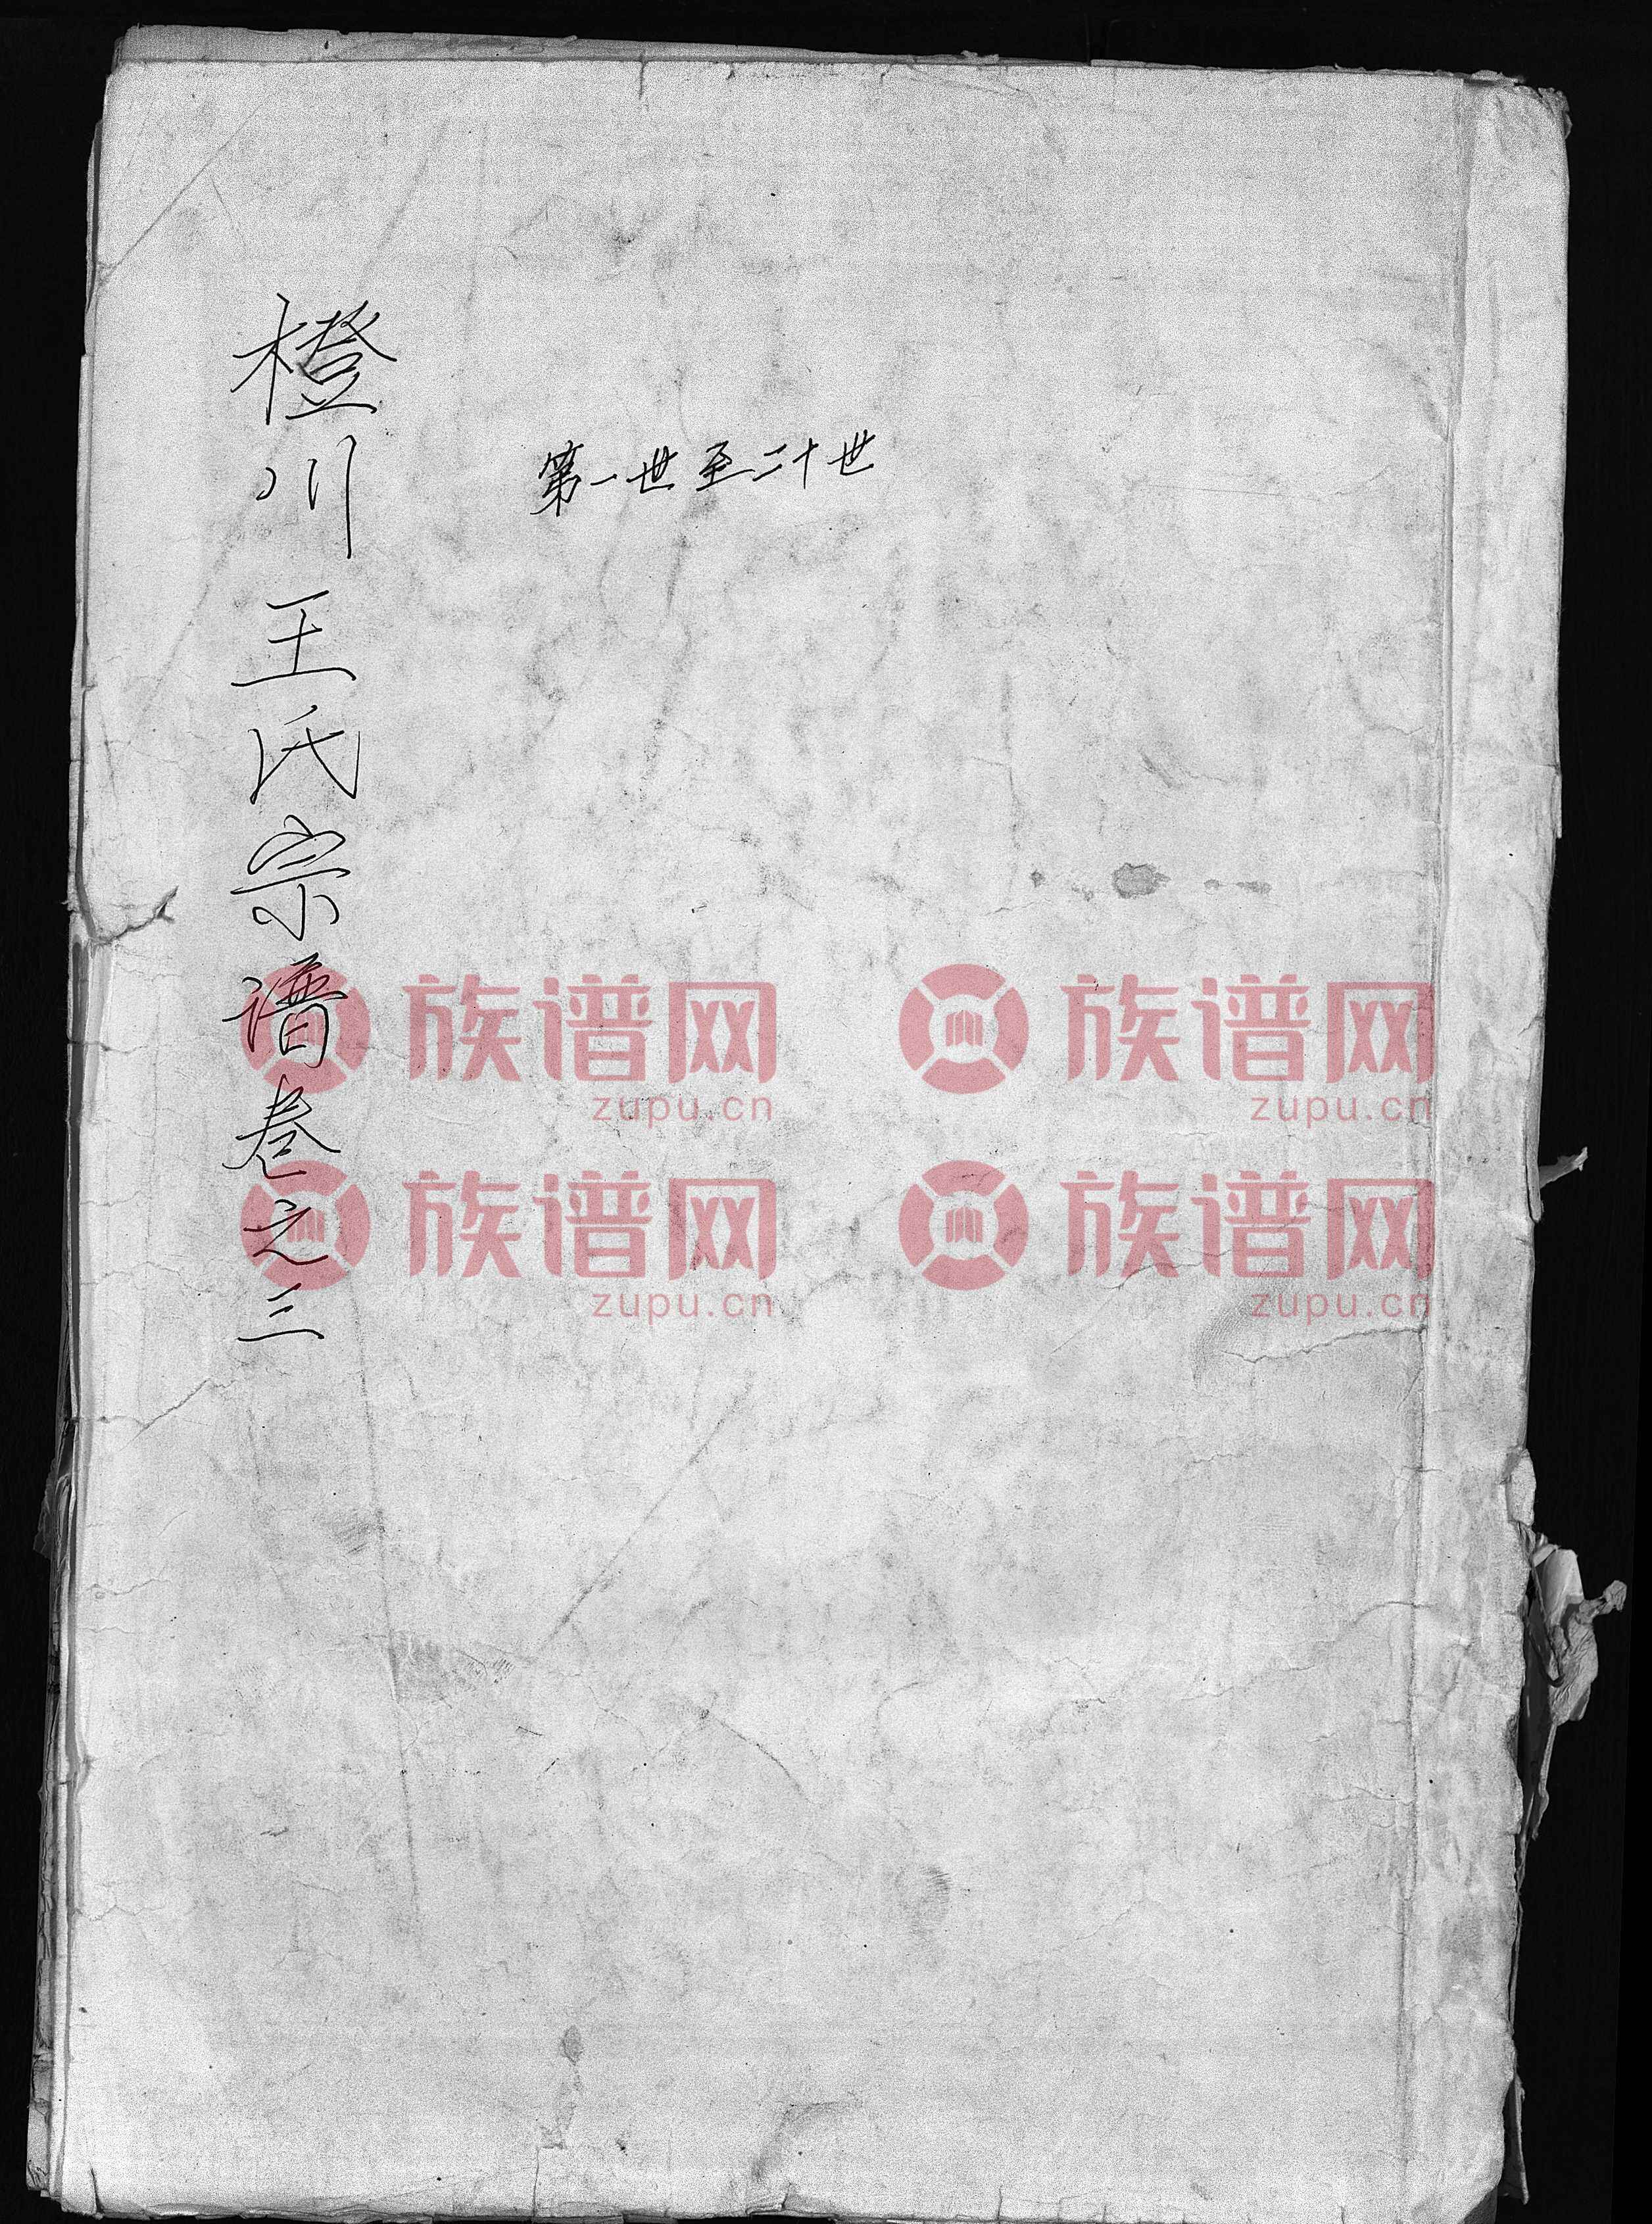 橙川王氏宗谱卷之三
第一世至二十世
族谱网 族谱网
zupu.cn zupu.cn
族谱网 族谱网
zupu.cn zupu.cn